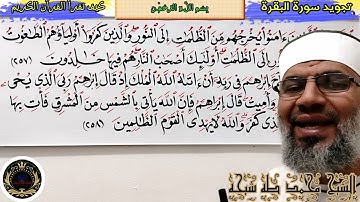 تجويد سورة البقرة
بسم الله الرحمن الرحيم
كيف تقرأ القرآن الكريم
ءَامَنُوا يُخْرِجُهُم مِّنَ الظُّلُمَٰتِ إِلَى النُّورِ وَالَّذِينَ كَفَرُوا أَوْلِيَاؤُهُمُ الطَّٰغُوتُ
إِلَى الظُّلُمَٰتِ أُولَٰئِكَ أَصْحَٰبُ النَّارِ هُمْ فِيهَا خَٰلِدُونَ (٢٥٧)
إِبْرَٰهِيمَ فِي رَبِّهِ أَنْ ءَاتَىٰهُ اللَّهُ الْمُلْكَ إِذْ قَالَ إِبْرَٰهِيمُ رَبِّيَ الَّذِي يُحْيِ
وَأُمِيتُ قَالَ إِبْرَٰهِيمُ فَإِنَّ اللَّهَ يَأْتِي بِالشَّمْسِ مِنَ الْمَشْرِقِ فَأْتِ بِهَا
الَّذِي كَفَرَ وَاللَّهُ لَا يَهْدِي الْقَوْمَ الظَّٰلِمِينَ (٢٥٨)
الشيخ محمد طه شحة